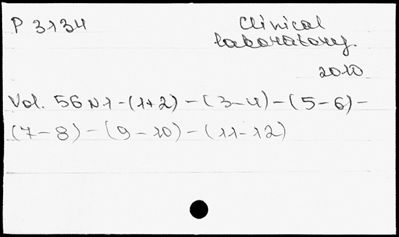 P 3134
Clinical
laboratory.
2010
Vol. 56 N1-(1+2)-(3-4)-(5-6)-
(7-8)-(9-10)-(11-12)